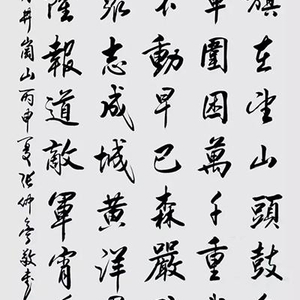 旗在望山頭鼓
軍圍困萬千重
不動早已森嚴
眾志成城黃洋
隆報道敵軍宵
井崗山丙申夏張仲敬書